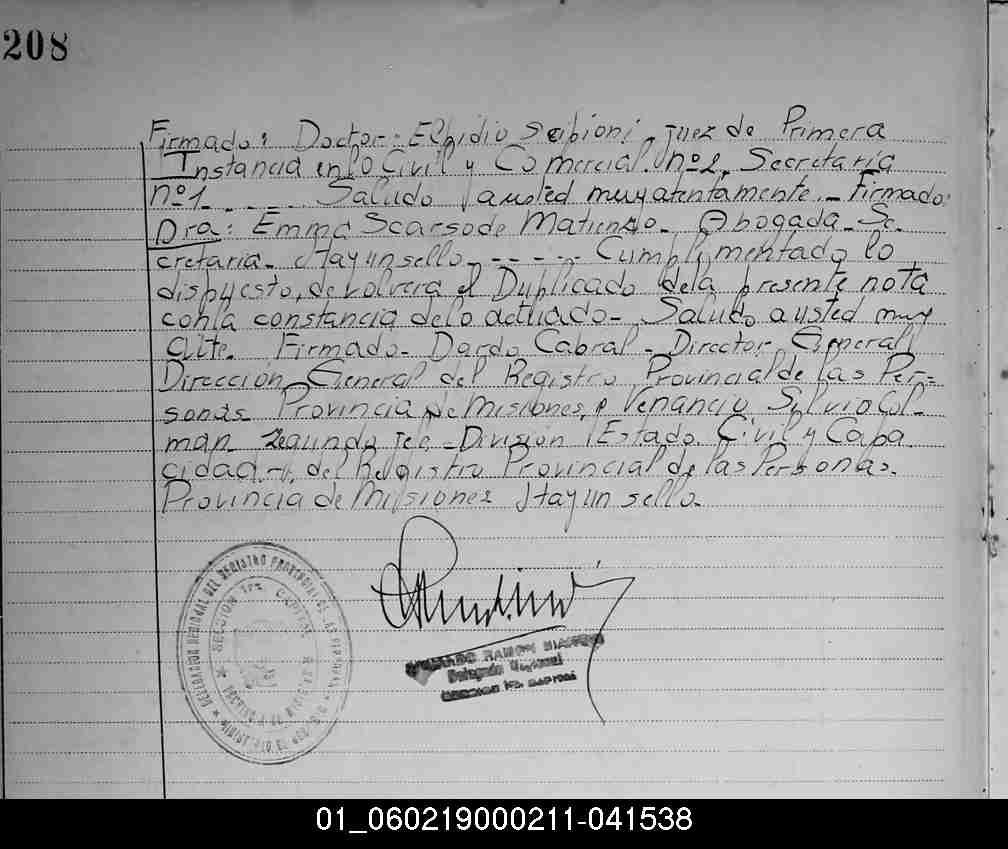 208
Firmado: Doctor: Elpidio Scipioni, juez de Primera
Instancia en lo Civil y Comercial. Nº 2, Secretaria
nº 1. - - - - - Saludo a usted muy atentamente. - Firmado:
Dra: Emma Scarso de Matienzo. Abogada. Se-
cretaria. Hay un sello. - - - - - Cumplimentado lo
dispuesto, devolverá el Duplicado de la presente nota
con la constancia de lo actuado - Saludo a usted muy
atte. Firmado - Dardo Cabral - Director General
Direccion General del Registro Provincial de las Per-
sonas Provincia de Misiones, Venancio Silvio Col-
man. Segundo Jefe - División Estado Civil y Capa
cidad - del Registro Provincial de las Personas.
Provincia de Misiones Hay un sello.
DELEGACION REGIONAL DEL REGISTRO PROVINCIAL DE LAS PERSONAS
SECCION 1ra. CAPITAL
RAMON
Delegado
01_060219000211-041538